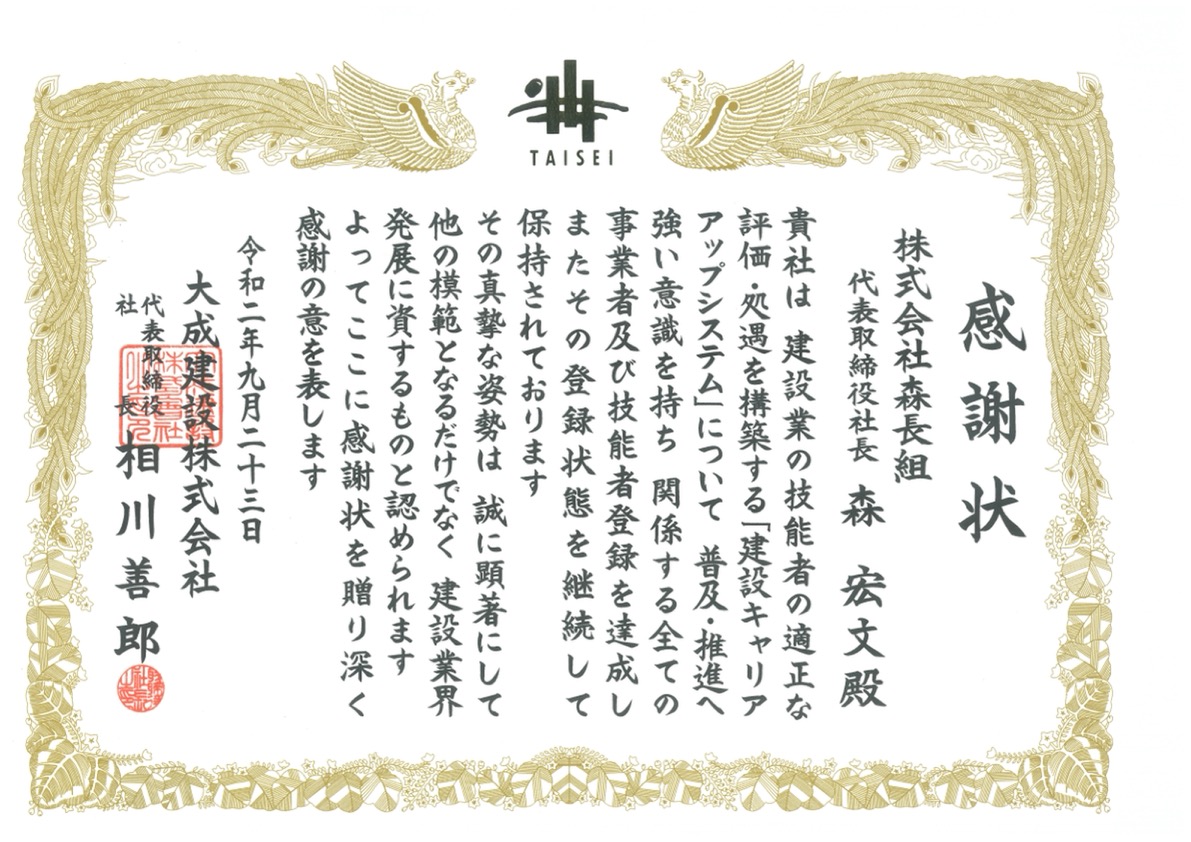 TAISEI
感謝状
株式会社森長組
代表取締役社長 森 宏文殿
貴社は 建設業の技能者の適正な
評価・処遇を構築する「建設キャリア
アップシステム」について 普及・推進へ
強い意識を持ち 関係する全ての
事業者及び技能者登録を達成し
またその登録状態を継続して
保持されております
その真摯な姿勢は 誠に顕著にして
他の模範となるだけでなく 建設業界
発展に資するものと認められます
よってここに感謝状を贈り深く
感謝の意を表します
令和二年九月二十三日
大成建設株式会社
代表取締役
社長 相川善郎